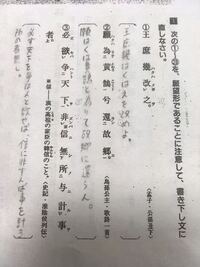 1 次の①~③を、願望形であることに注意して、書き下し文に
直しなさい。
①王庶幾改之。
(孟子・公孫丑下)
王庶幾はくは之を改めよ。
②願為黄鵠兮還故郷。
(烏孫公主・歌詩一首)
願はくは黄鵠と為りて故郷に還らん。
③必欲争天下、非信無所与計事
者。
*信=漢の高祖の家臣の韓信のこと。
(史記・淮陰侯列伝)
必ず天下を争はんと欲せば、信に非ずんば事を計る
所の者無し。